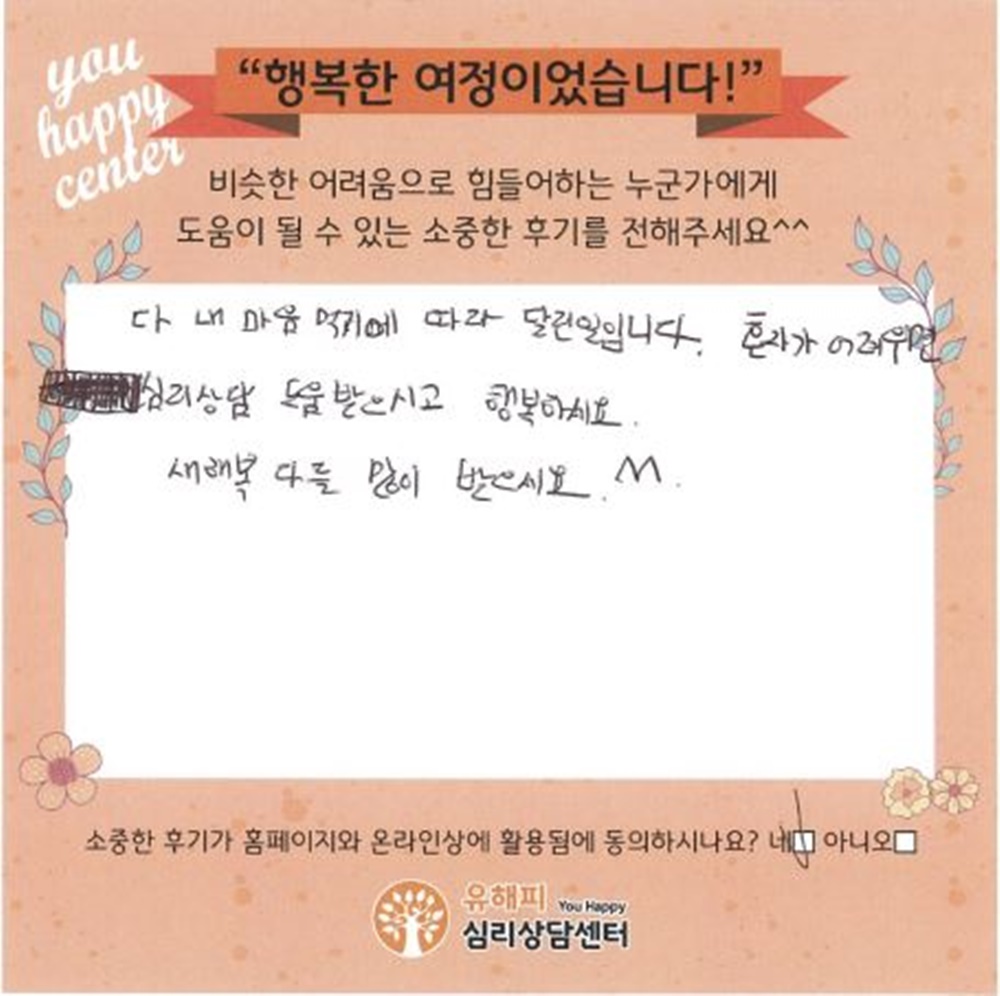 you
happy
center
“행복한 여정이었습니다!”
비슷한 어려움으로 힘들어하는 누군가에게
도움이 될 수 있는 소중한 후기를 전해주세요^^
다 내 마음 먹기에 따라 달린일입니다. 혼자가 어려우면
심리상담 도움받으시고 행복하세요.
새해복 다들 많이 받으세요.
소중한 후기가 홈페이지와 온라인상에 활용됨에 동의하시나요? 네 아니오
유해피 You Happy
심리상담센터